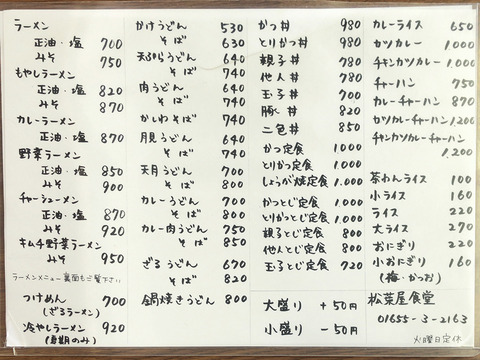 ラーメン
正油・塩 700
みそ 750
もやしラーメン
正油・塩 820
みそ 870
カレーラーメン
正油・塩 870
野菜ラーメン
正油・塩 850
みそ 900
チャーシューメン
正油・塩 870
みそ 920
キムチ野菜ラーメン
みそ 950
ラーメンメニュー裏面もご覧下さい
つけめん 700
(ざるラーメン)
冷やしラーメン 920
(夏期のみ)
かけうどん 530
そば 630
天ぷらうどん 640
そば 740
肉うどん 640
そば 740
かしわそば 740
月見うどん 640
そば 740
天月うどん 700
そば 800
カレーうどん 700
そば 800
カレー肉うどん 750
そば 850
ざるうどん 670
そば 820
鍋焼きうどん 800
かつ丼 980
とりかつ丼 980
親子丼 780
他人丼 780
玉子丼 700
豚丼 820
二色丼 850
かつ定食 1000
とりかつ定食 1.000
しょうが焼定食 1.000
かつとじ定食 1.000
とりかつとじ定食 1.000
親子とじ定食 800
他人とじ定食 800
玉子とじ定食 720
大盛り +50円
小盛り -50円
カレーライス 650
カツカレー 1.000
チキンカツカレー 1.000
チャーハン 750
カレーチャーハン 870
カツカレーチャーハン 1.200
チキンカツカレーチャーハン
1.200
茶わんライス 100
小ライス 160
ライス 220
大ライス 270
おにぎり 220
小おにぎり 160
(梅・かつお)
松葉屋食堂
01655-3-2163
火曜日定休